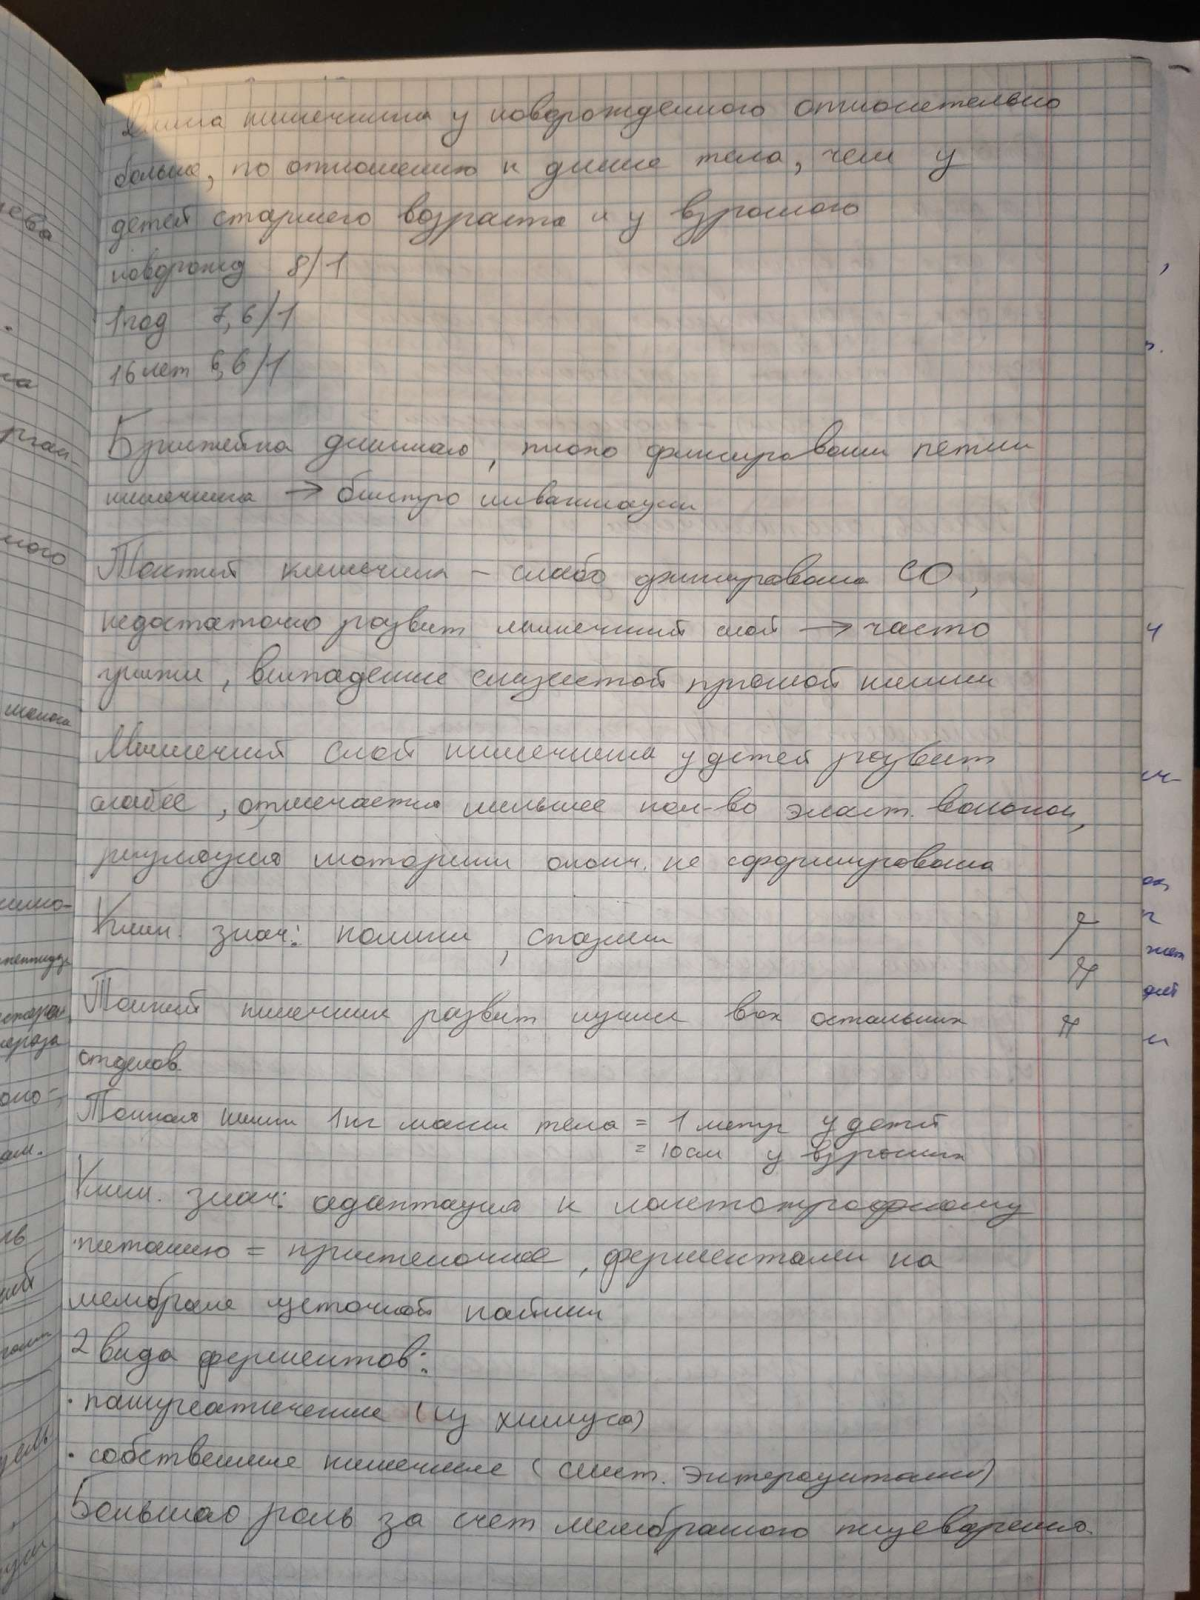 Длина кишечника у новорожденного относительно
больше, по отношению к длине тела, чем у
детей старшего возраста и у взрослого
новорожд 8/1
1 год 7,6/1
16 лет 6,6/1
Брыжейка длинная, плохо фиксированы петли
кишечника → быстро инвагинации
Толстый кишечник - слабо фиксирована СО,
недостаточно развит мышечный слой → часто
грыжи, выпадение слизистой прямой кишки
Мышечный слой кишечника у детей развит
слабее, отмечается меньшее кол-во эласт. волокон,
регуляция моторики оконч. не сформирована
Клин. знач: колики, спазмы
Тонкий кишечник развит лучше всех остальных
отделов
Тонкая кишка 1 кг массы тела = 1 метр у детей
= 10 см у взрослых
Клин. знач: адаптация к лактотрофному
питанию = пристеночное, ферментами на
мембране щеточной каймы
2 вида ферментов:
· панкреатические (из химуса)
· собственные кишечные (синт. энтероцитами)
Большая роль за счет мембранного пищеварения.